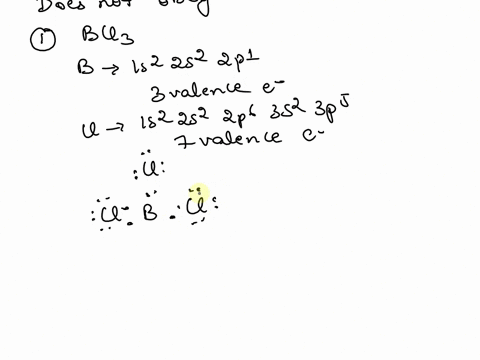 Does not obey
① BCl3
B → 1s² 2s² 2p¹
3 valence e⁻
Cl → 1s² 2s² 2p⁶ 3s² 3p⁵
7 valence e⁻
:Cl:
:Cl . B . Cl: